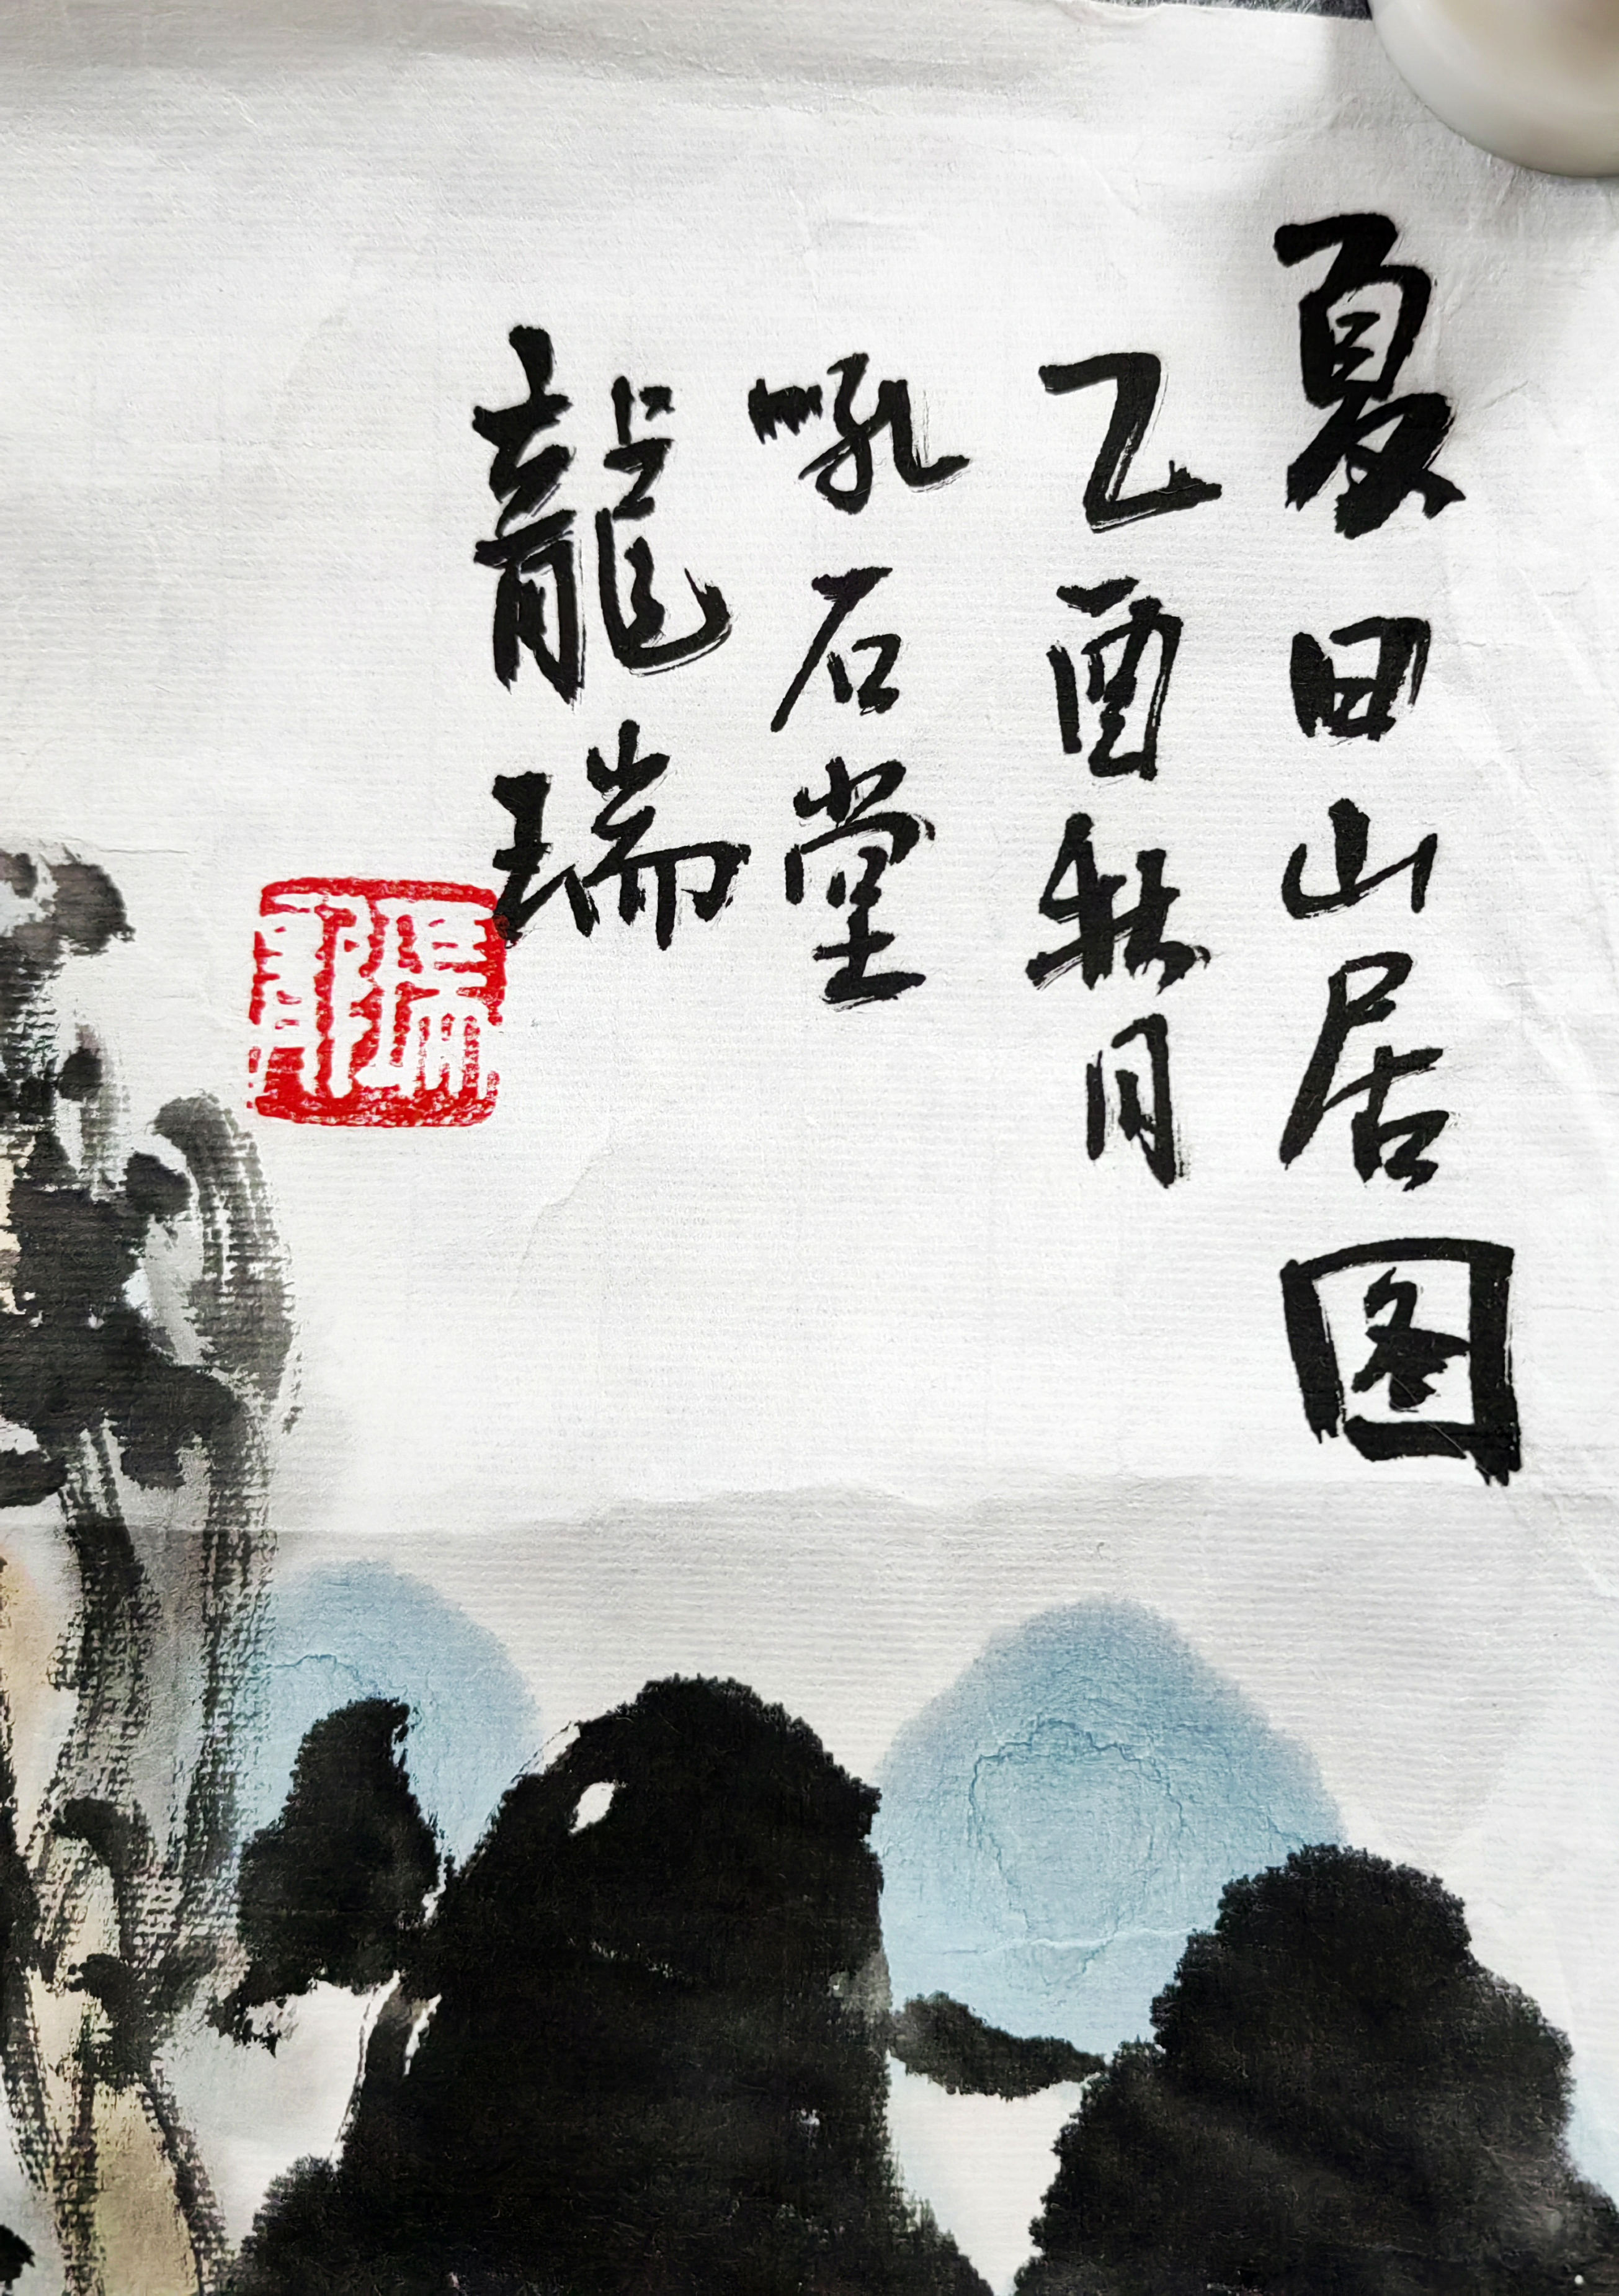 夏日山居图
乙酉秋月
吼石堂
龍瑞